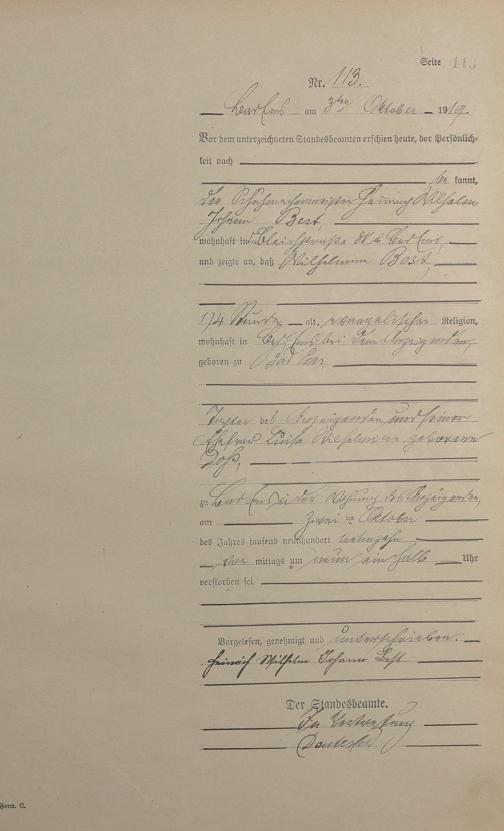 Seite 113
Nr. 113.
Bad Ems am 3ten Oktober 1919.
Vor dem unterzeichneten Standesbeamten erschien heute, der Persönlich-
keit nach
be kannt,
der Schuhmachermeister Heinrich Wilhelm
Johann Best,
wohnhaft in Bad Ems,
und zeigte an, daß Wilhelmine Best,
1/4 Stunde alt, evangelischer Religion,
wohnhaft in Bad Ems bei dem Anzeigenden,
geboren zu Bad Ems,
Tochter des Anzeigenden und seiner
Ehefrau Luise Wilhelmine geborene
zu Bad Ems in der Wohnung des Anzeigenden,
am zwei ten Oktober
des Jahres tausend neunhundert neunzehn
mittags um neun ein halb Uhr
verstorben sei.
Vorgelesen, genehmigt und unterschrieben.
Heinrich Wilhelm Johann Best
Der Standesbeamte.
In Vertretung
Form. C.